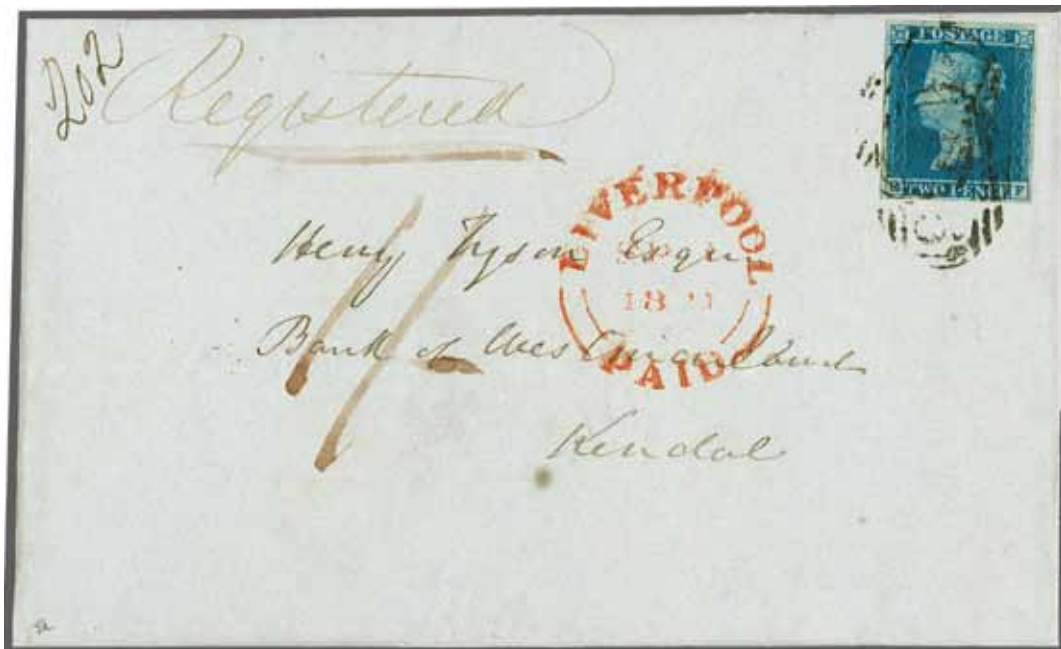 202
Registered
POSTAGE
TWO PENCE F
LIVERPOOL
PAID
1/-
Henry Tyson Esqre
Bank of Westmoreland
Kendal